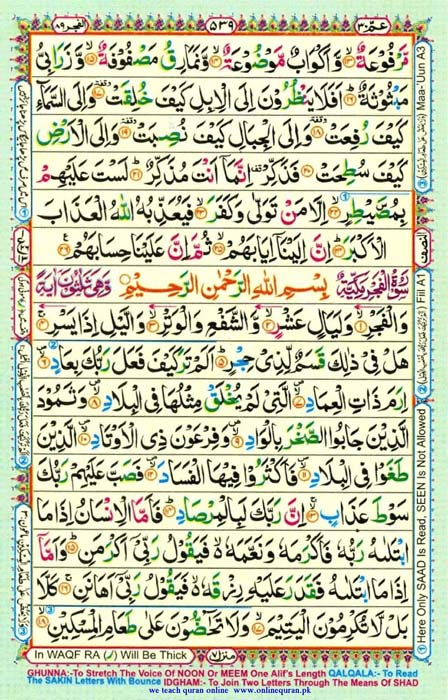 الفجر ٨٩
٥٣٩
عمّ ٣٠
مَّرْفُوْعَةٌ ۙ﴿۱۳﴾ وَّاَكْوَابٌ مَّوْضُوْعَةٌ ۙ﴿۱۴﴾ وَّنَمَارِقُ مَصْفُوْفَةٌ ۙ﴿۱۵﴾ وَّزَرَابِیُّ
مَبْثُوْثَةٌ ؕ﴿۱۶﴾ اَفَلَا یَنْظُرُوْنَ اِلَی الْاِبِلِ كَیْفَ خُلِقَتْ ۥ﴿۱۷﴾ وَاِلَی السَّمَآءِ
كَیْفَ رُفِعَتْ ۥ﴿۱۸﴾ وَاِلَی الْجِبَالِ كَیْفَ نُصِبَتْ ۥ﴿۱۹﴾ وَاِلَی الْاَرْضِ
كَیْفَ سُطِحَتْ ۥ﴿۲۰﴾ فَذَكِّرْ ؕ۟ اِنَّمَاۤ اَنْتَ مُذَكِّرٌ ؕ﴿۲۱﴾ لَسْتَ عَلَیْهِمْ
بِمُصَۜیْطِرٍ ۙ﴿۲۲﴾ اِلَّا مَنْ تَوَلّٰی وَكَفَرَ ۙ﴿۲۳﴾ فَیُعَذِّبُهُ اللّٰهُ الْعَذَابَ
الْاَكْبَرَ ؕ﴿۲۴﴾ اِنَّ اِلَیْنَاۤ اِیَابَهُمْ ۙ﴿۲۵﴾ ثُمَّ اِنَّ عَلَیْنَا حِسَابَهُمْ ﴿۲۶﴾
سُوْرَةُ الْفَجْرِ مَكِّیَّةٌ بِسْمِ اللّٰهِ الرَّحْمٰنِ الرَّحِیْمِ وَهِیَ ثَلٰثُوْنَ اٰیَةً
وَالْفَجْرِ ۙ﴿۱﴾ وَلَیَالٍ عَشْرٍ ۙ﴿۲﴾ وَّالشَّفْعِ وَالْوَتْرِ ۙ﴿۳﴾ وَالَّیْلِ اِذَا یَسْرِ ۚ﴿۴﴾
هَلْ فِیْ ذٰلِكَ قَسَمٌ لِّذِیْ حِجْرٍ ؕ﴿۵﴾ اَلَمْ تَرَ كَیْفَ فَعَلَ رَبُّكَ بِعَادٍ ۪ۙ﴿۶﴾
اِرَمَ ذَاتِ الْعِمَادِ ۪ۙ﴿۷﴾ الَّتِیْ لَمْ یُخْلَقْ مِثْلُهَا فِی الْبِلَادِ ۪ۙ﴿۸﴾ وَثَمُوْدَ
الَّذِیْنَ جَابُوا الصَّخْرَ بِالْوَادِ ۪ۙ﴿۹﴾ وَفِرْعَوْنَ ذِی الْاَوْتَادِ ۪ۙ﴿۱۰﴾ الَّذِیْنَ
طَغَوْا فِی الْبِلَادِ ۪ۙ﴿۱۱﴾ فَاَكْثَرُوْا فِیْهَا الْفَسَادَ ۪ۙ﴿۱۲﴾ فَصَبَّ عَلَیْهِمْ رَبُّكَ
سَوْطَ عَذَابٍ ۚۙ﴿۱۳﴾ اِنَّ رَبَّكَ لَبِالْمِرْصَادِ ؕ﴿۱۴﴾ فَاَمَّا الْاِنْسَانُ اِذَا مَا
ابْتَلٰىهُ رَبُّهٗ فَاَكْرَمَهٗ وَنَعَّمَهٗ ۙ۬ فَیَقُوْلُ رَبِّیْۤ اَكْرَمَنِ ؕ﴿۱۵﴾ وَاَمَّاۤ
اِذَا مَا ابْتَلٰىهُ فَقَدَرَ عَلَیْهِ رِزْقَهٗ ۙ۬ فَیَقُوْلُ رَبِّیْۤ اَهَانَنِ ۚ﴿۱۶﴾ كَلَّا
بَلْ لَّا تُكْرِمُوْنَ الْیَتِیْمَ ۙ﴿۱۷﴾ وَلَا تَحٰٓضُّوْنَ عَلٰی طَعَامِ الْمِسْكِیْنِ ۙ﴿۱۸﴾
منزل ٧
③ Maa-'Uun A3
النصف
② Fiil A1
① Here Only SAAD Is Read, SEEN Is Not Allowed
In WAQF RA (ر) Will Be Thick
GHUNNA:-To Stretch The Voice Of NOON Or MEEM One Alif's Length QALQALA:- To Read
The SAKIN Letters With Bounce IDGHAM:- To Join Two Letters Through The Means Of SHAD
we teach quran online www.onlinequran.pk